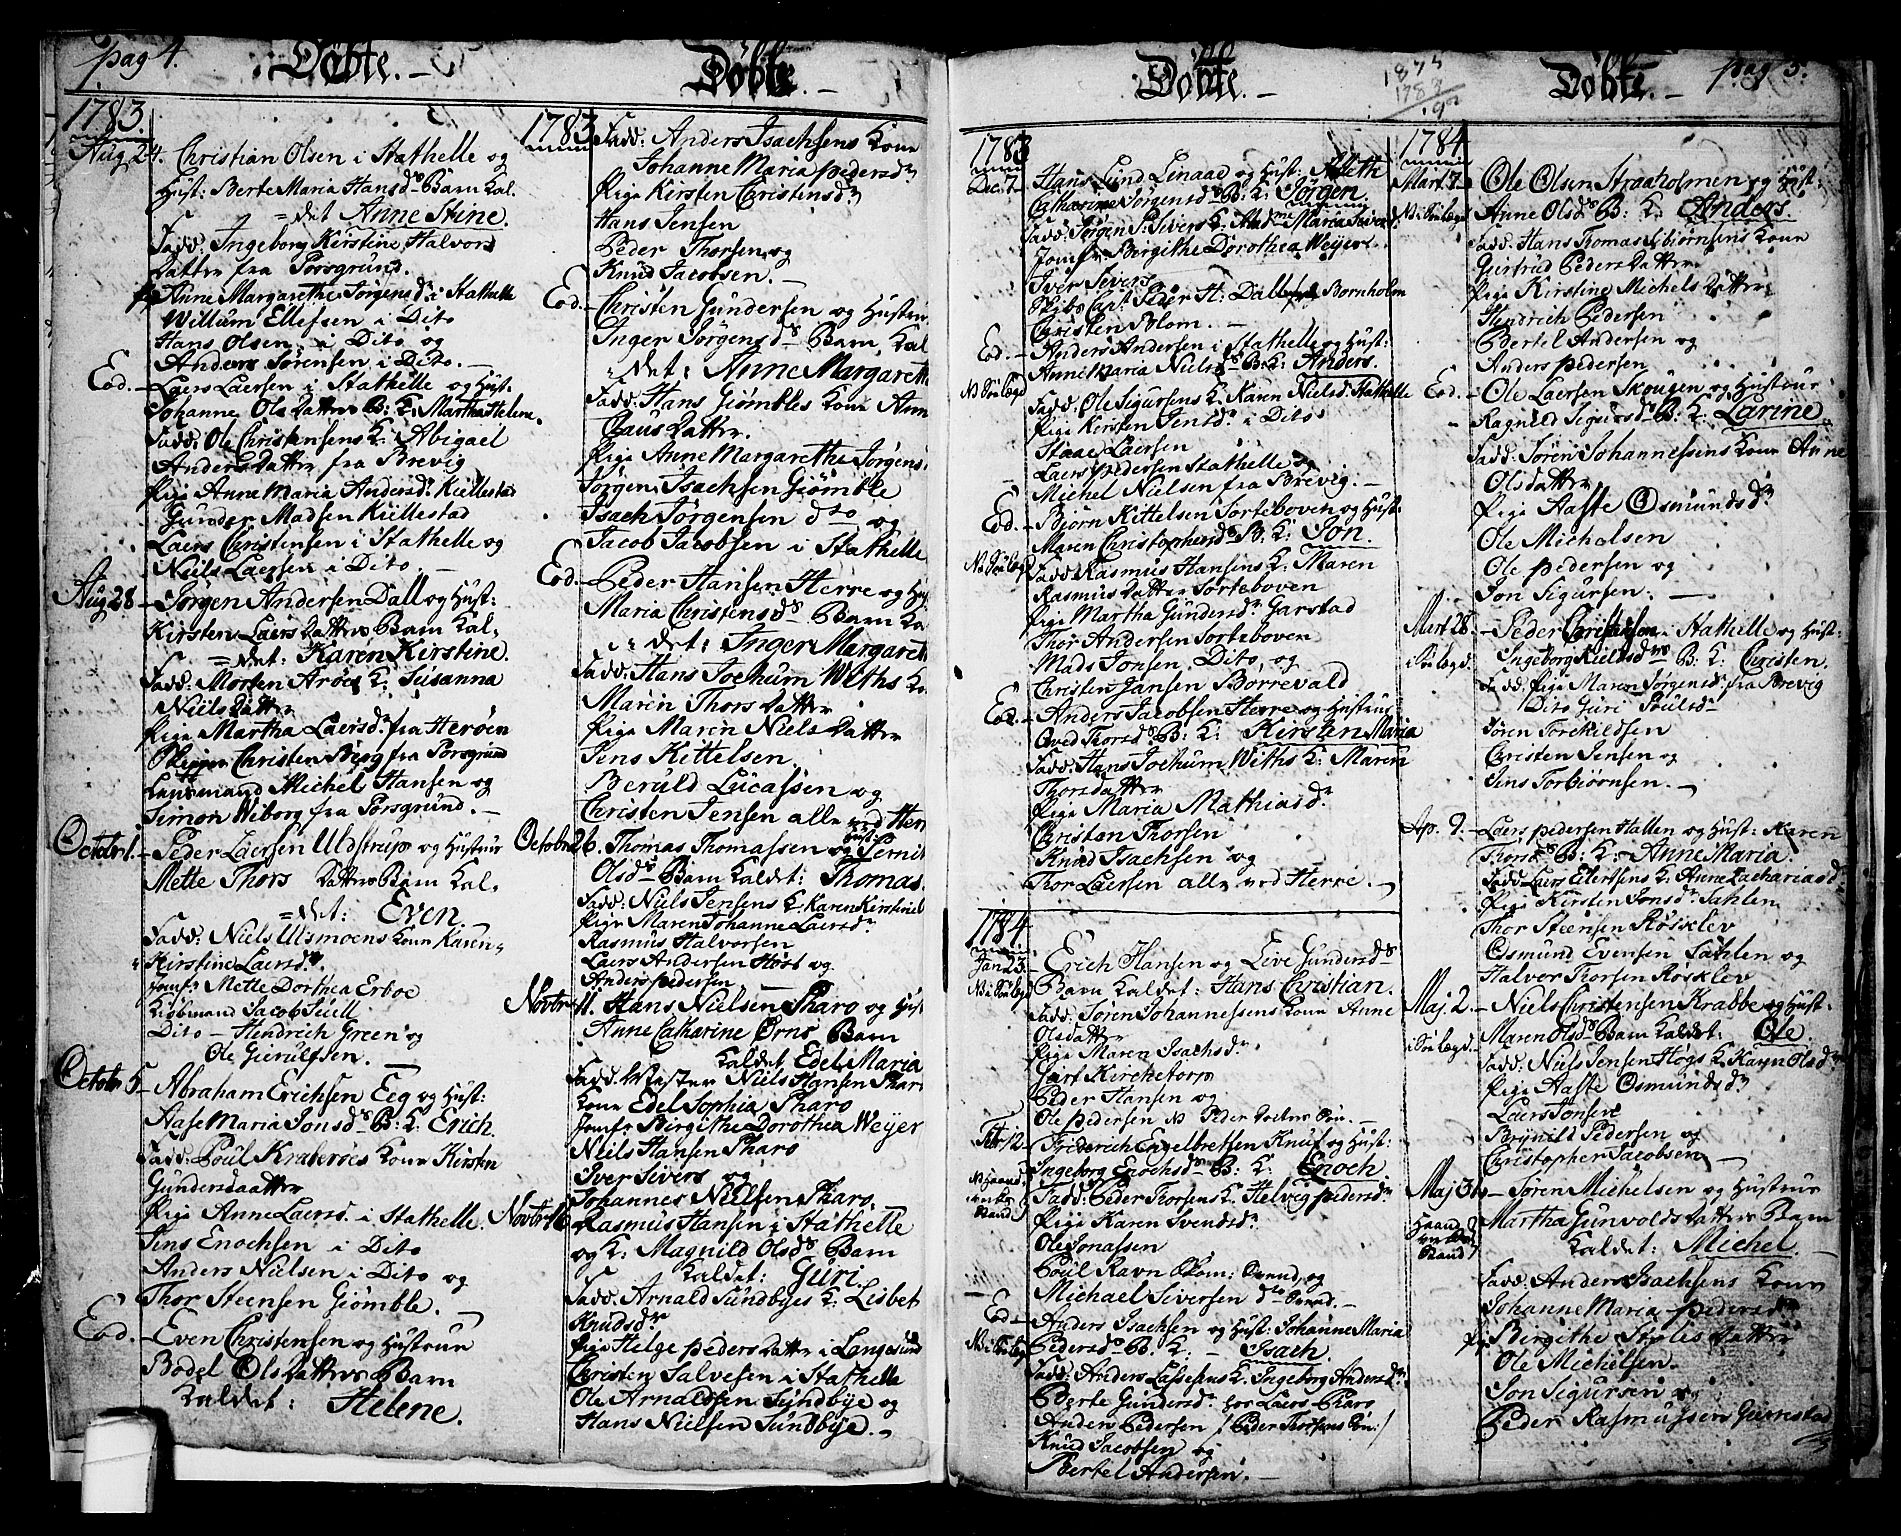 pag 4.
Döbte. -
1783.
Aug 24. Christian Olsen i Stathelle og
Hust: Berte Maria Hansdr Barn Kal-
=det Anne Stine.
Fadd: Ingeborg Kirstine Halvors
datter fra Porsgrund.
Anne Margarethe Jörgensdr i Stathelle
Willum Ellefsen i Dito
Hans Olsen i Dito og
Anders Sörensen i Dito. -
Eod. - Laers Laersen i Stathelle og Hust:
Johanne Olsdatters B: K: Martha Helene.
Fadd: Ole Christensens K: Abigael
Andersdatter fra Brevig
Pige Anne Maria Andersdr Kiellestad
Gunder Madsen Kiellestad
Laers Christensen i Stathelle og
Niels Laersen i Dito. -
Aug 28 - Jörgen Andersen Dall og Hust:
Kirsten Laersdatters Barn Kal-
=det: Karen Kirstine.
Fadd: Morten Aröes K: Susanna
Nielsdatter
Pige Martha Laersdr fra Heröen
Skipper Christen Berg fra Porsgrund
Lansmand Michel Hansen og
Simon Wiborg fra Porsgrund. -
Octobr 1. - Peder Laersen Uldstrup og Hustrue
Mette Thorsdatters Barn Kal-
=det: Even.
Fadd: Niels Ulsmoens Kone Karen
Kirstine Laersdr
Jomfr Mette Dorthea Erboe
Kiöbmand Jacob Juell
Dito - Hendrich Green og
Ole Gerulfsen. -
Octobr 5 - Abraham Erichsen Eeg og Hust:
Aase Maria Jonsdr B: K: Erich.
Fadd: Poul Kraberöes Kone Kirsten
Gundersdaatter
Pige Anne Laersd. i Stathelle.
Jens Enochsen i Dito
Anders Nielsen i Dito og
Thor Steensen Giömble. -
Eod. - Even Christensen og Hustrue
Bodel Olsdatters Barn
Kaldet: Helene.
Döbte.
1783
Fadd: Anders Isachsens Kone
Johanne Maria Pedersdr
Pige Kirsten Christensdr
Hans Jensen
Peder Thorsen og
Knud Jacobsen. -
Eod. - Christen Gundersen og Hustrue
Inger Jörgensdr Barn Kal
=det: Anne Margareth
Fadd: Hans Giömbles Kone Anne
Clausdatter.
Pige Anne Margarethe Jörgens
Jörgen Isachsen Giömble
Isach Jörgensen dto og
Jacob Jacobsen i Stathelle
Eod. - Peder Hansen Herre og Hus
Maria Christensdr Barn Ka
=det: Inger Margareth
Fadd: Hans Jochum Withs Ko
Maren Thorsdatter
Pige Maren Nielsdatter
Jens Kittelsen.
Beruld Lucassen og
Christen Jensen alle ved Herr
Octobr 26. Thomas Thomassen og Hust: Pernil
Olsdr Barn Kaldet: Thomas.
Fadd: Niels Jensens K: Karen Kirstine L
Pige Maren Johanne Laersdr
Rasmus Halvorsen
Laers Andersen Höst og
Anders Pedersen
Novbr 11. Hans Nielsen Pharo og Hust
Anne Catharine Örns Barn
Kaldet Edel Maria
Fadd: Mester Niels Hansen Phar
Kone Edel Sophia Pharo
Jomfr Birgithe Dorothea Weyer
Niels Hansen Pharo
Iver Sivers og
Johannes Nielsen Pharo. -
Novbr 16. Rasmus Hansen i Stathelle
og K: Magnild Olsdr Barn
Kaldet: Guri.
Fadd: Arnald Sundbyes K: Lisbet
Knudsdr
Pige Helge Pedersdatter i Langesund
Christen Salvesen i Stathelle
Ole Arnaldsen Sundbye og
Hans Nielsen Sundbye. -
Döbte. -
1783
Dec. 7. Hans Lund Linaae og Hust: Alleth
Catharine Jörgensdr B: K: Jörgen.
Fadd: Jörgen S: Sivers K: Mad Maria Sivers
Jomfr Birgithe Dorothea Weyer.
Iver Sivers
Skibs Capt Peder H: Dall Bornholm
Christen Blom. -
Eod. - Anders Andersen i Stathelle og Hust:
Anne Maria Nielsdr B: K: Anders.
Fadd: Ole Sigursens K: Karen Nielsd Stathelle
Pige Kirsten Jensdr i Dito
Staae Laersen
Laers Pedersen Stathelle og
Michel Nielsen fra Brevig. -
Eod. - Björn Kittelsen Torteboven og Hust:
Maren Christophersdr B: K: Jon.
Fadd: Rasmus Hansens K: Maren
Rasmusdatter Torteboven
Pige Martha Gundersdr Garstad
Thor Andersen Torteboven
Mads Jonsen, Dito, og
Christen Jansen Borrevald
Eod. - Anders Jacobsen Herre og Hustrue
Aved Thorsdr B: K: Kirsten Maria
Fadd: Hans Jochum Withs K: Maren
Thorsdatter
Pige Maria Mathiasdr
Christen Thorsen
Knud Isachsen og
Thor Laersen alle ved Herre. -
1784
Jan 23. Erich Hansen og Live Gundersdr
Barn Kaldet: Hans Christian.
Fadd: Sören Johannessens Kone Anne
Olsdatter
Pige Maren Isachsdr
Giert Kirchetorp
Peder Hansen og
Ole Pedersen
Febr 12 - Friderich Engelbretsen Knuf og Hust:
Ingeborg Enochsdr B: K: Enoch.
Fadd: Peder Thorsens K: Helvig Pedersdr
Pige Karen Svendsdr
Ole Jonassen
Poul Ravn og
Michael Siversen
Eod - Anders Isachsen og Hust: Johanne Maria
Pedersdr B: K: - Isach.
Fadd: Anders Lassesens K: Ingeborg Andersdr
Berte Gundersdr hos Laers Pharo
Anders Pedersen / Peder Thorsens Sön: /
Knud Jacobsen og
Bertel Andersen. -
1875
1783
92
Döbte. -
pag 5.
1784
Mart 7. Ole Olsen Straaholmen og Hust:
Anne Olsdr B: K: Anders.
Fadd: Hans Thomas Esbiörnsens Kone
Giertrud Pedersdatter
Pige Kirstine Michelsdatter
Hendrich Pedersen
Bertel Andersen og
Anders Pedersen
Eod. - Ole Laersen Skougen og Hustrue
Ragnild Sigursdr B: K: Larine
Fadd: Sören Johannessens Kone Anne
Olsdatter
Pige Aaste Osmundsdr
Ole Micholsen
Ole Pedersen og
Jon Sigursen. -
Mart 28. - Peder Christensen i Stathelle og Hust:
Ingeborg Kieldsdrs B: K: Christen.
Fadd. Pige Maren Jörgensdr fra Brevig
Dito Guri Poulsdr
Sören Torkildsen
Christen Jensen og
Jens Torbiörnsen. -
Ap. 9. - Laers Pedersen Hallen og Hust: Karen
Thorsdr B: K: Anne Maria.
Fadd: Laers Eilertsens K: Anne Zachariasdr
Pige Kirsten Jonsdr Sahlen
Thor Steensen Röskslev
Osmund Evensen Sahlen og
Halvor Thorsen Rosklev
Maj. 2. - Niels Christensen Krabbe og Hust:
Maren Olsdr Barn Kaldet: Ole.
Fadd: Niels Jensen Högs K: Karen Olsdr
Pige Aaste Osmundsdr
Laers Jonsen
Brynild Pedersen og
Christopher Jacobsen -
Maj 31. - Sören Michelsen og Hustrue
Martha Gunvoldsdatters Barn
Kaldet: Michel.
Fadd: Anders Isachsens Kone
Johanne Maria Pedersdr
Birgithe Nielsdatter
Ole Michelsen.
Jon Sigursen og
Peder Rasmussen Gierrestad